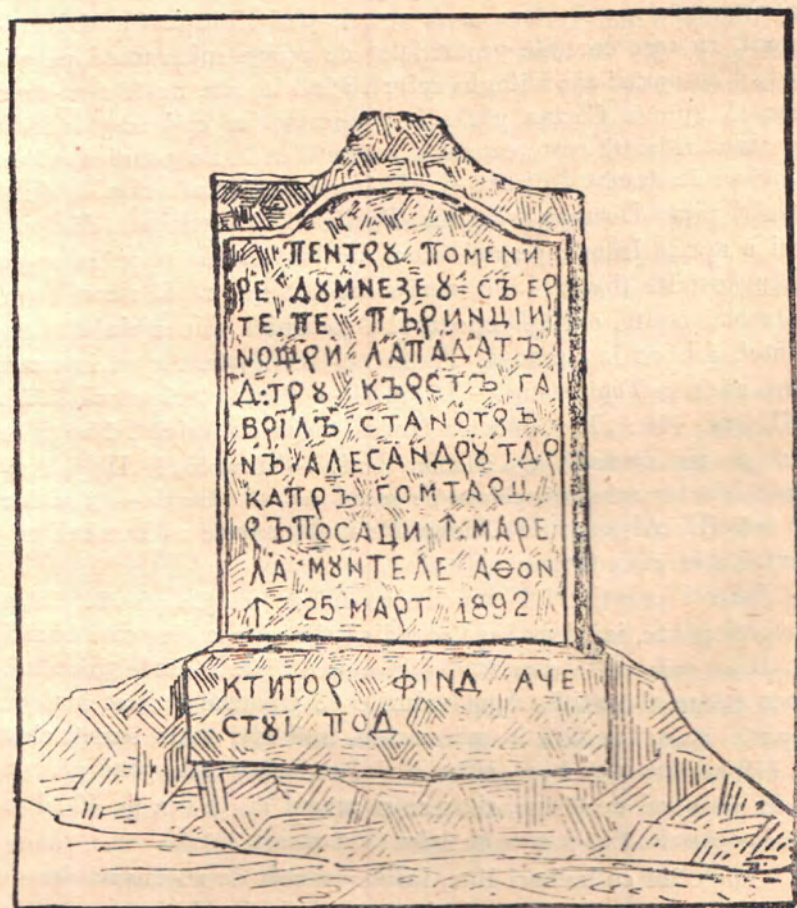 ПЕНТРꙊ ПОМЕНИ
РЕ ДꙊМНЕЗЕꙊ = СЪ ЕР
ТЕ ПЕ ПЪРИНЦІИ
НОЩРИ ЛАПАДАТЪ
Д:ТРꙊ КЪРСТЪ ГА
ВРІЛЪ СТАНОТРЪ
НЪ АЛЕСАНДРꙊ ТДР
КАПРЪ ГОМТАРЦІ
РЪПОСАЦИ ꙟ МАРЕ
ЛА МꙊНТЕЛЕ АѲОН
ꙟ 25 МАРТ 1892
КТИТОР ФІНД АЧЕ
СТꙊІ ПОД